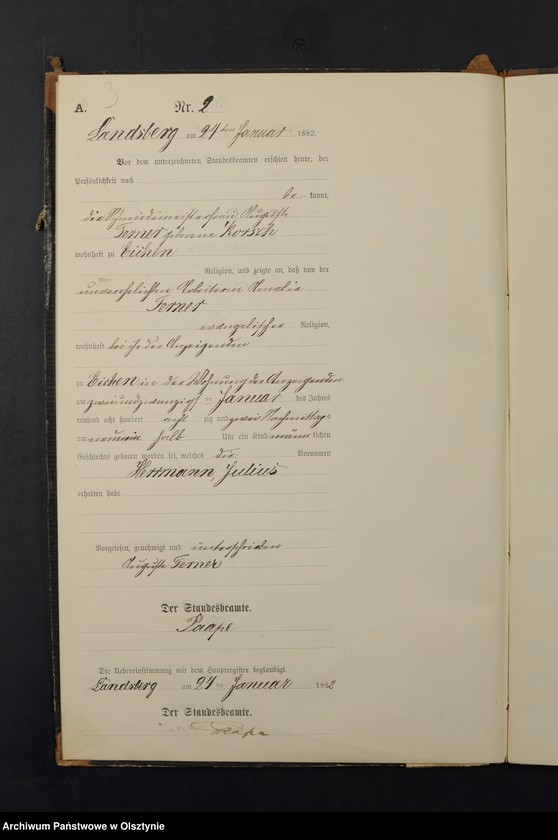 3
A. Nr. 2
Landsberg am 24ten Januar 1882.
Vor dem unterzeichneten Standesbeamten erschien heute, der
Persönlichkeit nach
be kannt,
die Schmiedemeisterfrau Auguste
Ferner geborene Korsch
wohnhaft zu Eichen
Religion, und zeigte an, daß von der
unverehelichten Arbeiterin Amalie
Ferner
evangelischer Religion,
wohnhaft bei ihr der Anzeigenden
zu Eichen in der Wohnung der Anzeigenden
am zweiundzwanzigsten Januar des Jahres
tausend acht hundert acht zig und zwei Nachmittags
um neun ein halb Uhr ein Kind männ lichen
Geschlechts geboren worden sei, welches die Vornamen
Herrmann, Julius
erhalten habe
Vorgelesen, genehmigt und unterschrieben
Auguste Ferner
Der Standesbeamte.
Paape
Die Uebereinstimmung mit dem Hauptregister beglaubigt.
Landsberg am 24ten Januar 1882
Der Standesbeamte.
Paape
Archiwum Państwowe w Olsztynie